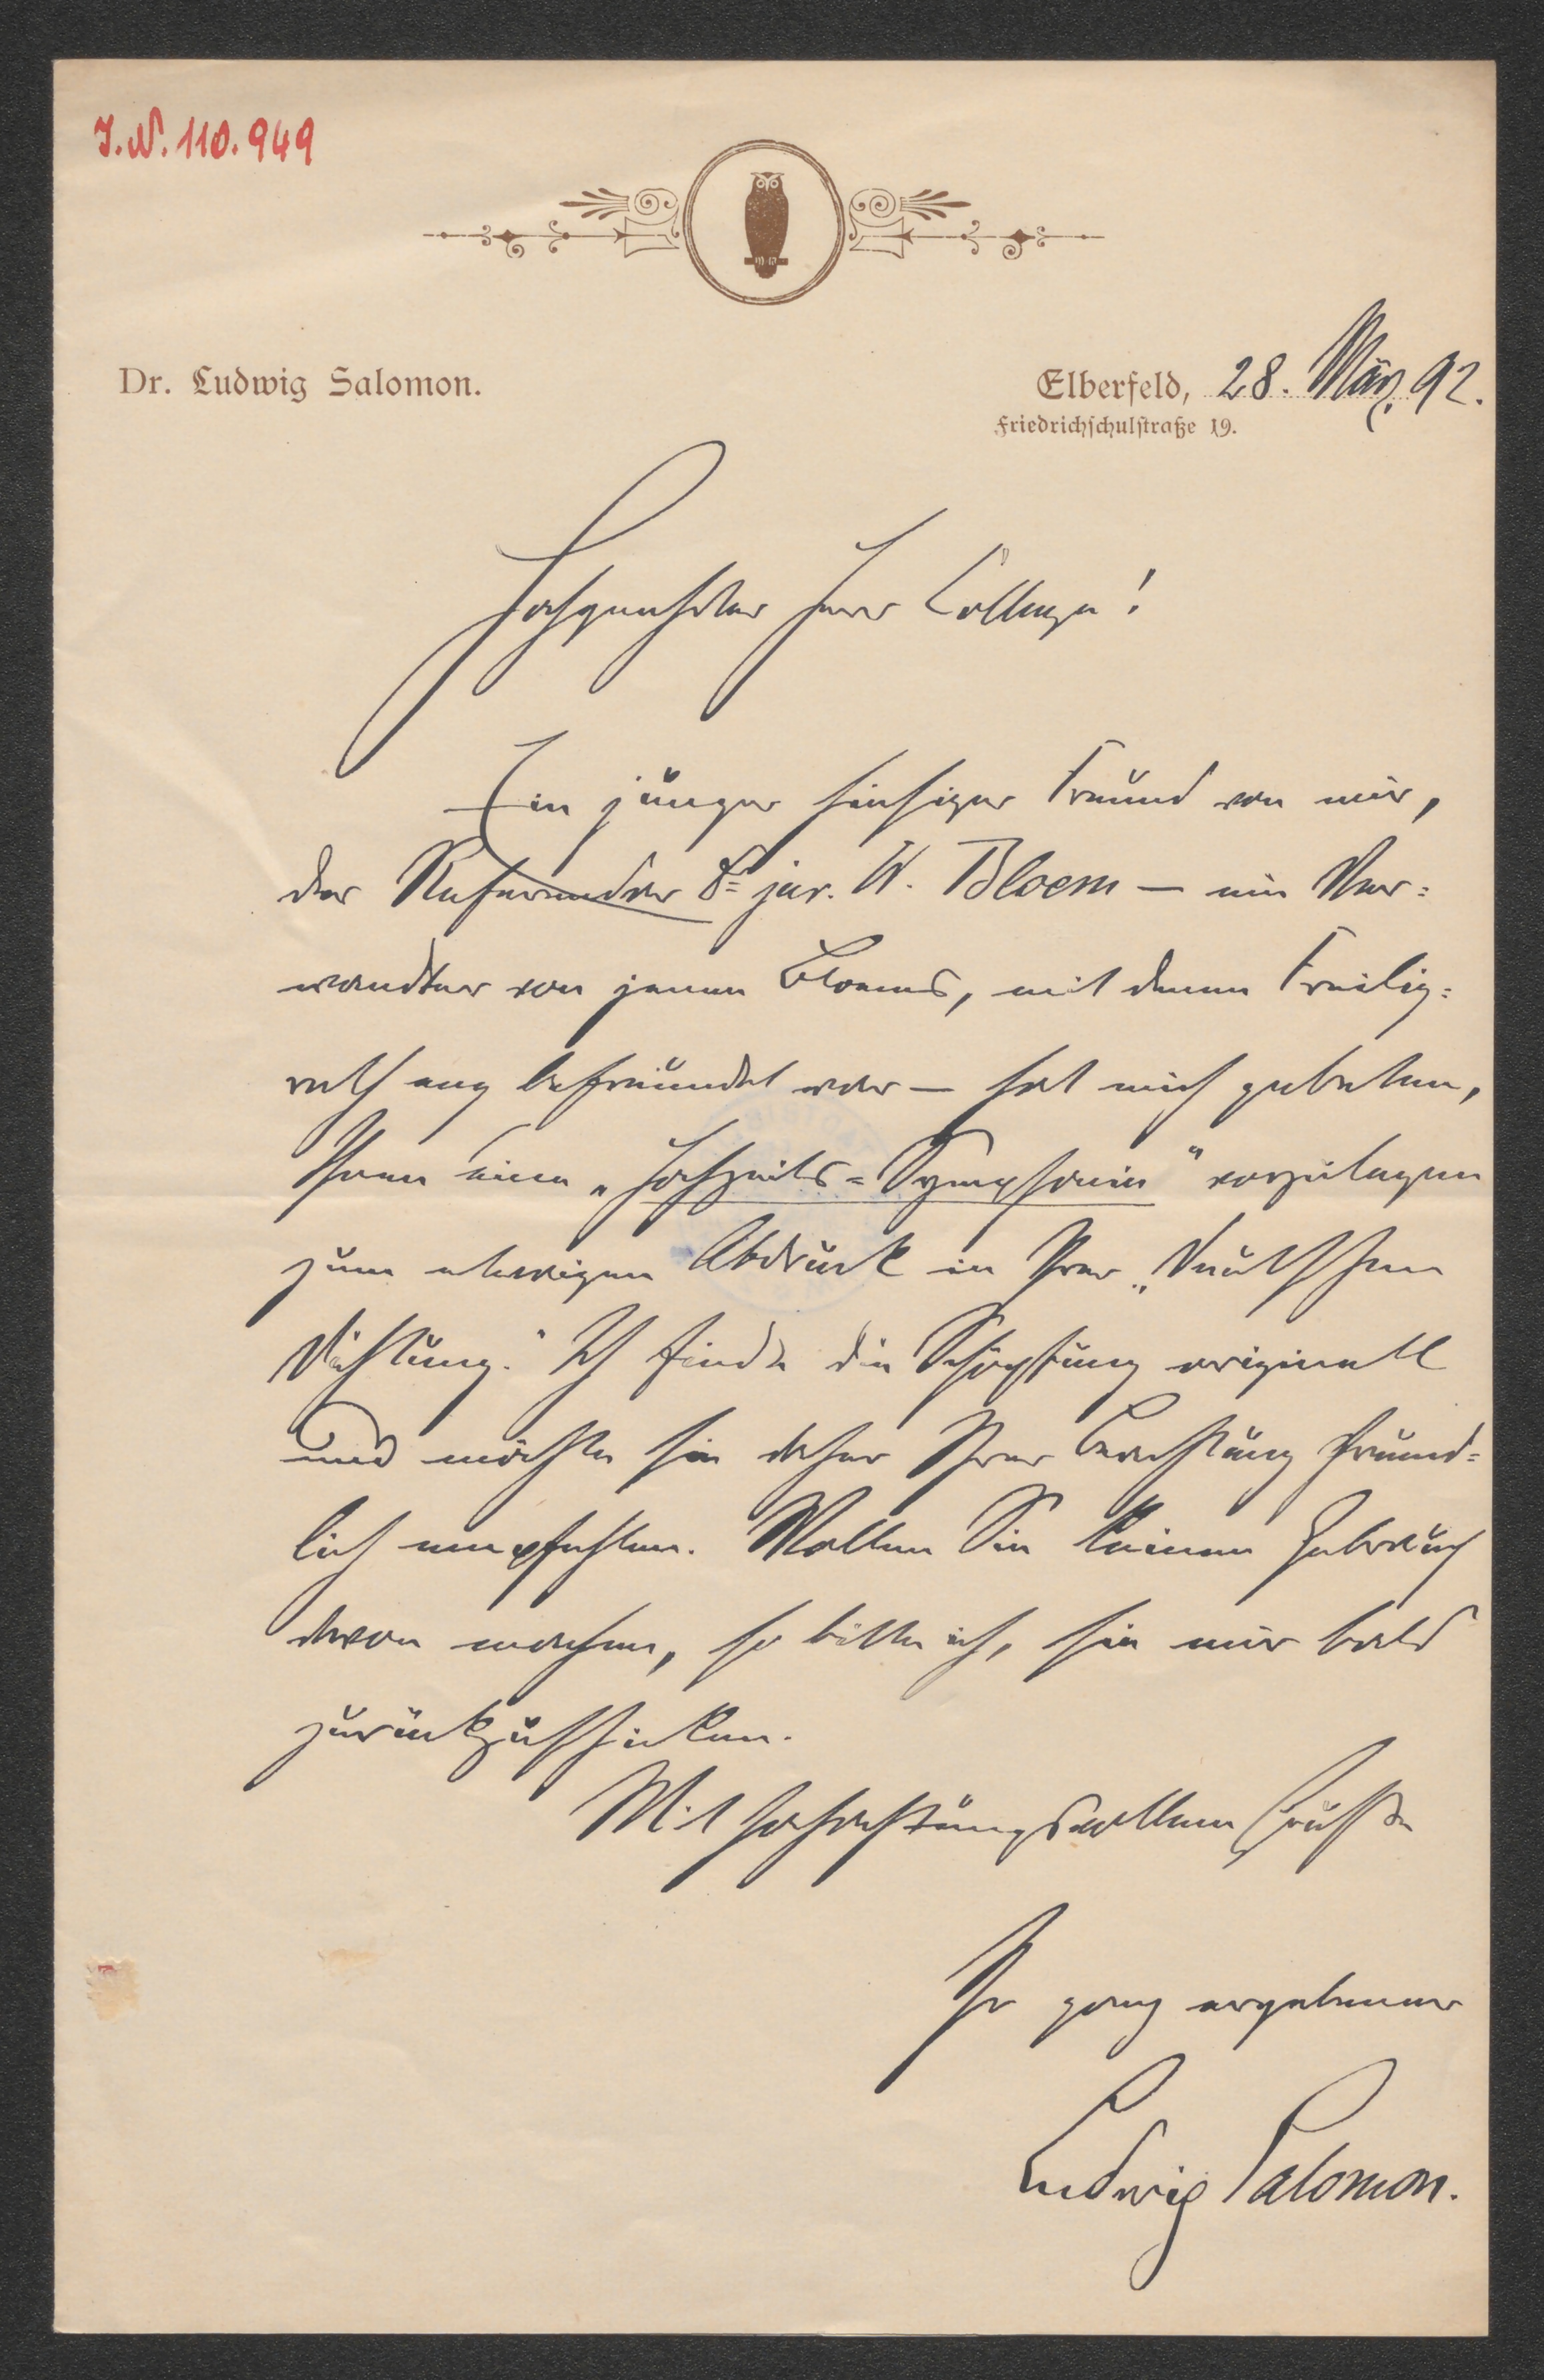 J.N. 110.949
Dr. Ludwig Salomon.
Elberfeld, 28. März 92.
Friedrichschulstraße 19.
Hochgeehrter Herr College!
Ein junger hiesiger Freund von mir,
der Referendar Dr jur. W. Bloem — ein Ver=
wandter von jenen Bloems, mit denen Freilig=
rath eng befreundet war — hat mich gebeten,
Ihnen seine „Hochzeits=Symphonie“ vorzulegen
zum etwaigen Abdruck in Ihrer „Deutschen
Dichtung.“ Ich finde die Schöpfung originell
und möchte sie daher Ihrer Beachtung freund=
lich empfehlen. Wollen Sie keinen Gebrauch
davon machen, so bitte ich, sie mir bald
zurückzuschicken.
Mit hochachtungsvollem Gruße
Ihr ganz ergebener
Ludwig Salomon.